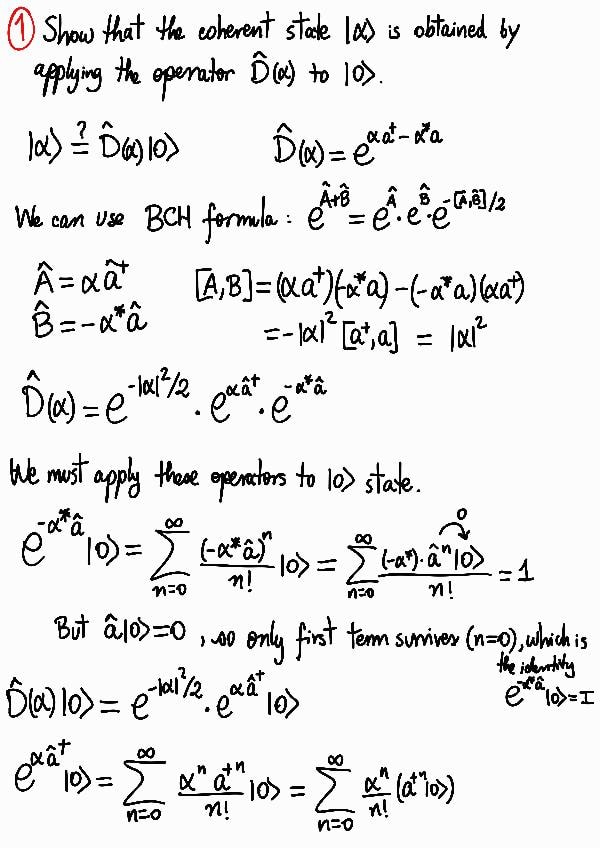 ① Show that the coherent state |α⟩ is obtained by
applying the operator D̂(α) to |0⟩.
|α⟩ ≟ D̂(α)|0⟩ D̂(α) = e^{αa† - α*a}
We can use BCH formula: e^{Â+B̂} = e^{Â} · e^{B̂} · e^{-[Â,B̂]/2}
Â = α â† [A,B] = (αa†)(-α*a) - (-α*a)(αa†)
B̂ = -α* â = -|α|² [a†,a] = |α|²
D̂(α) = e^{-|α|²/2} · e^{αâ†} · e^{-α*â}
We must apply these operators to |0⟩ state.
e^{-α*â}|0⟩ = ∑_{n=0}^{∞} (-α*â)^n / n! |0⟩ = ∑_{n=0}^{∞} (-α*)·â^n|0⟩ / n! = 1 0
But â|0⟩=0, so only first term survives (n=0), which is
the identity
D̂(α)|0⟩ = e^{-|α|²/2} · e^{αâ†}|0⟩ e^{-α*â}|0⟩=I
e^{αâ†}|0⟩ = ∑_{n=0}^{∞} α^n a†^n / n! |0⟩ = ∑_{n=0}^{∞} α^n / n! (a†^n|0⟩)